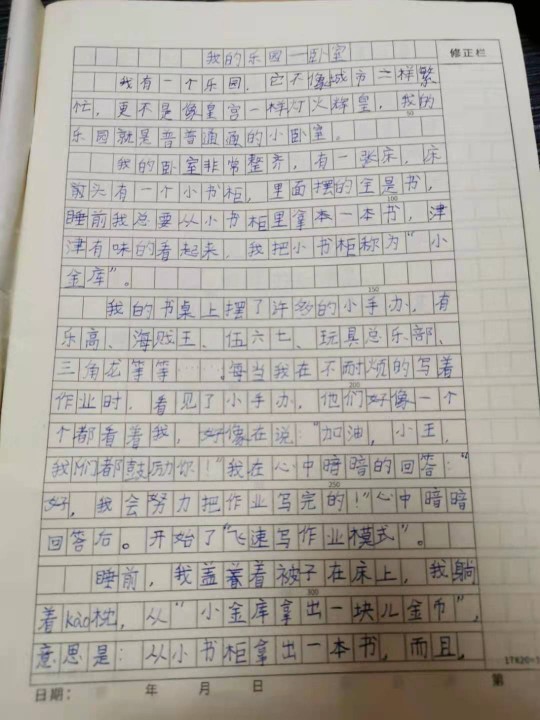 我的乐园—卧室
修正栏
我有一个乐园，它不像城市一样繁
忙，更不是像皇宫一样灯火辉皇，我的
50
乐园就是普普通通的小卧室。
我的卧室非常整齐，有一张床，床
前头有一个小书柜，里面摆的全是书，
100
睡前我总要从小书柜里拿本一本书，津
津有味的看起来，我把小书柜称为“小
金库”。
150
我的书桌上摆了许多的小手办，有
乐高、海贼王、伍六七、玩具总乐部、
三角龙等等……。每当我在不耐烦的写着
200
作业时，看见了小手办，他们好像一个
个都看着我，好像在说：“加油，小王，
我们都鼓励你！”我在心中暗暗的回答：“
250
好，我会努力把作业写完的！”心中暗暗
回答后。开始了“飞速写作业模式”。
睡前，我盖着被子在床上，我躺
300
着kào枕，从“小金库拿出一块儿金币”，
意思是：从小书柜拿出一本书，而且，
日期： 年 月 日 第